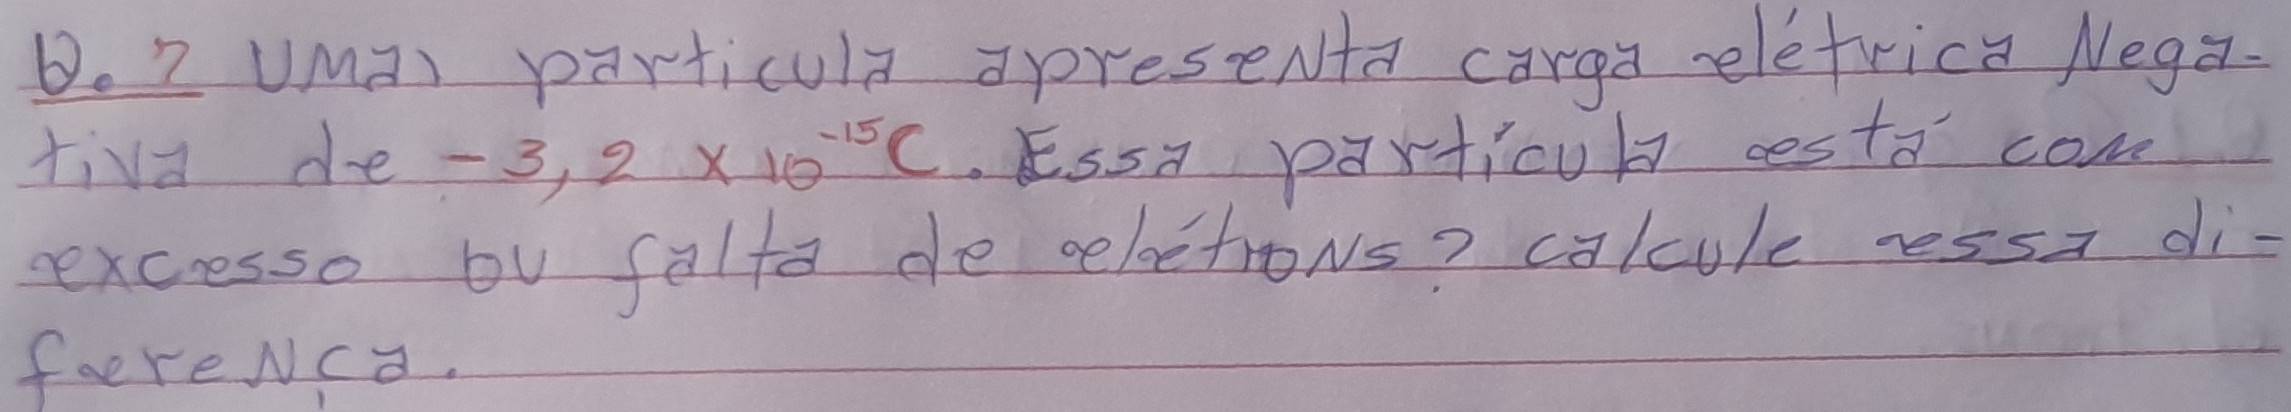 Q.7 Uma particula apresenta carga elétrica Nega-
tiva de -3,2 x 10⁻¹⁵C. Essa partícula está com
excesso ou falta de elétrons? calcule essa di-
ferença.